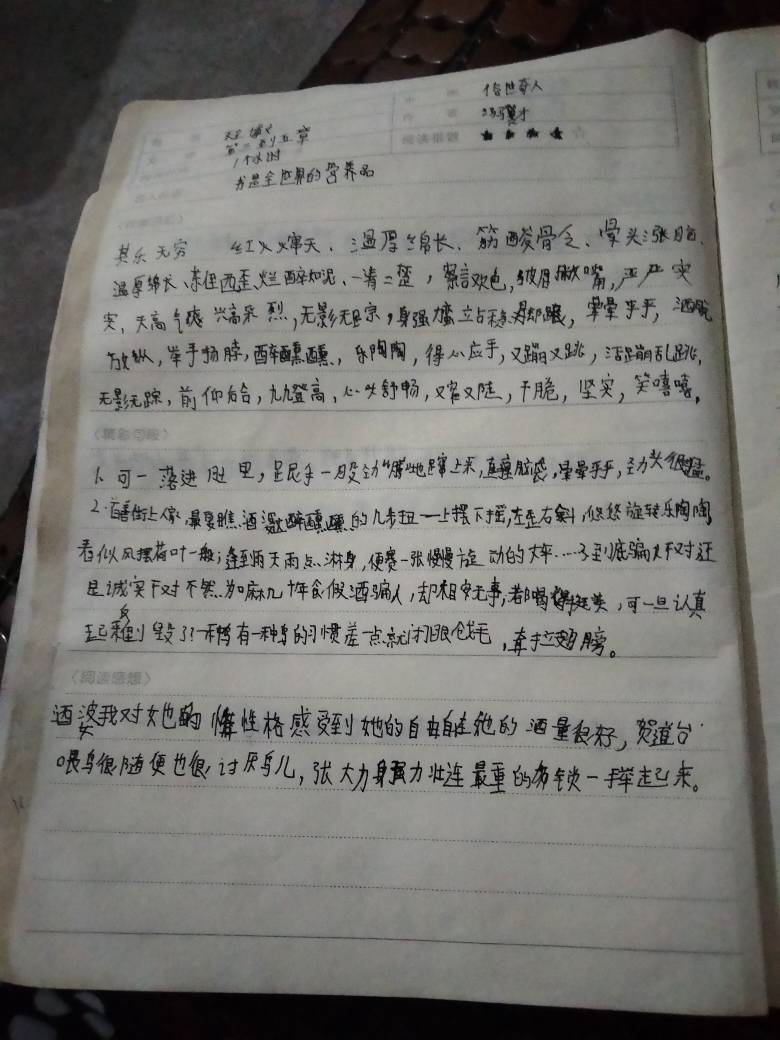 俗世奇人
冯骥才
第二到五章
1个小时
阅读指数 ★★★★☆
书是全世界的营养品
其乐无穷 红火爆天、温厚绵长、筋酸骨乏、骨头涨脑、
温厚绵长、东倒西歪、烂醉如泥、一清二楚,察言观色,皱眉撇嘴,严严实
实,天高气爽 兴高采烈,无影无踪,身强力壮,晕晕乎乎,洒脱
放纵,举手扬脖,醉醺醺,乐陶陶,得心应手,又蹦又跳,活蹦乱跳,
无影无踪,前仰后合,九九登高,心头舒畅,又窄又陡,干脆,坚实,笑嘻嘻,
〈精彩句段〉
1、可一落进肚里,跟手一股劲“腾”地蹿上来,直撞脑袋,晕晕乎乎,劲头很猛。
2.首善街上人家,最要瞧酒婆醉醺醺的几步扭一上摆下摇,左歪右斜,悠悠旋转乐陶陶
看似风摆荷叶一般;逢到雨天雨点淋身,便赛一张慢慢旋动的大伞……了到底骗人不对还
是诚实不对不然为嘛几十年食假酒骗人,却相安无事,都喝得挺美,可一旦认真
起来反倒毁了?鸟有一种鸟的习惯差一点就闭眼伐毛,牵拉翅膀。
〈阅读感想〉
酒婆我对她的性格感受到她的自由自在她的酒量很好,贺道台
喂鸟很随便也很讨厌鸟儿,张大力身强力壮连最重的石锁一手举起来。